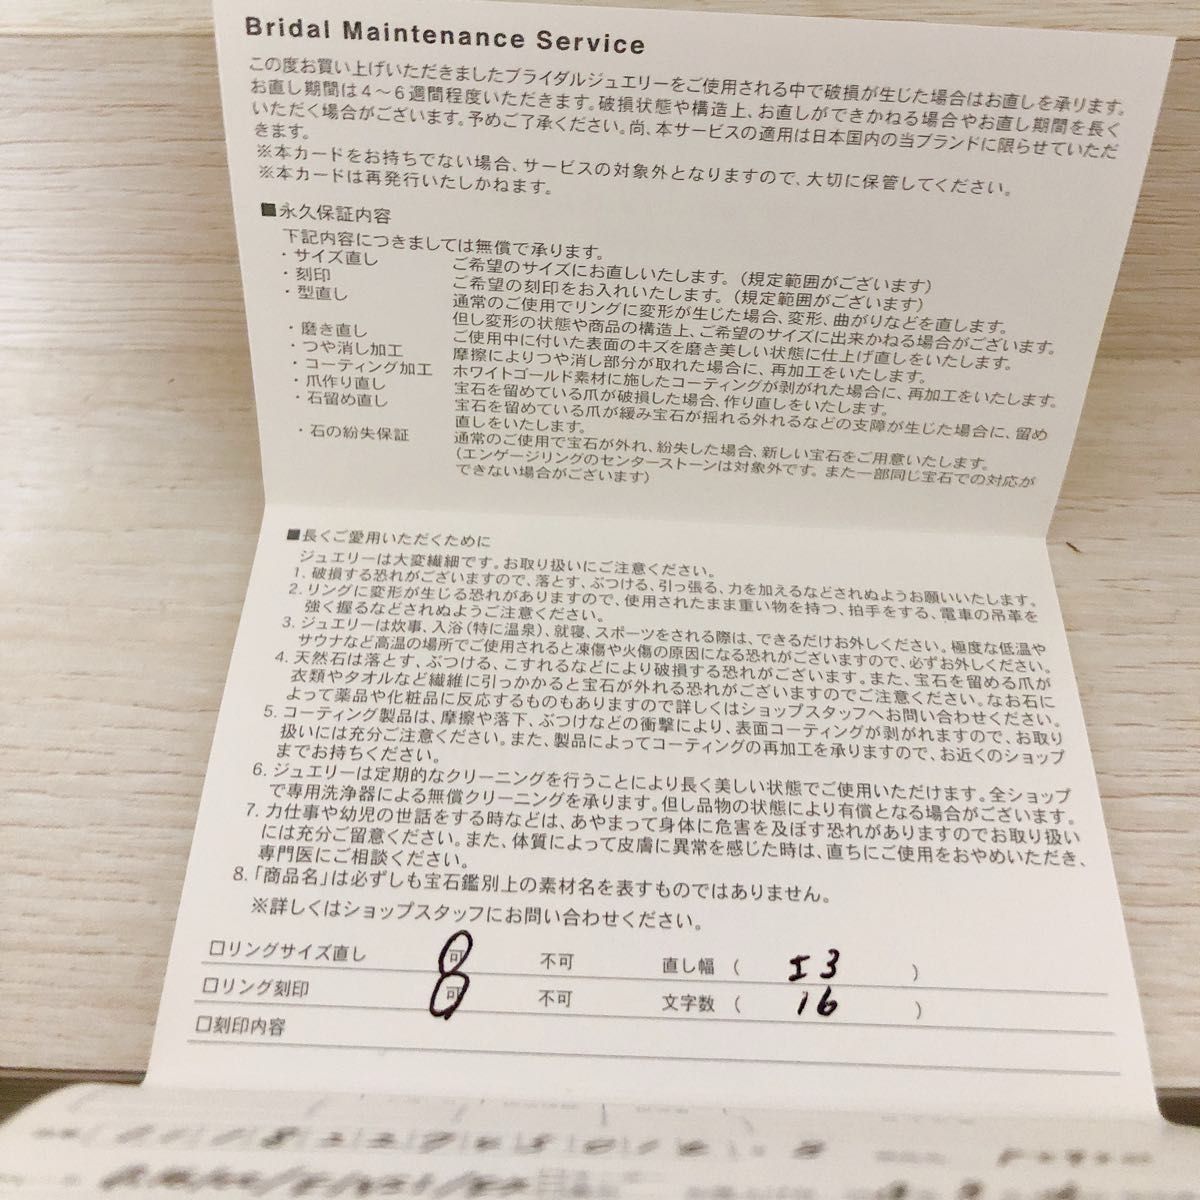 Bridal Maintenance Service
この度お買い上げいただきましたブライダルジュエリーをご使用される中で破損が生じた場合はお直しを承ります。
お直し期間は4～6週間程度いただきます。破損状態や構造上、お直しができかねる場合やお直し期間を長く
いただく場合がございます。予めご了承ください。尚、本サービスの適用は日本国内の当ブランドに限らせていただ
きます。
※本カードをお持ちでない場合、サービスの対象外となりますので、大切に保管してください。
※本カードは再発行いたしかねます。
■永久保証内容
下記内容につきましては無償で承ります。
・サイズ直し ご希望のサイズにお直しいたします。(規定範囲がございます)
・刻印 ご希望の刻印をお入れいたします。(規定範囲がございます)
・型直し 通常のご使用でリングに変形が生じた場合、変形、曲がりなどを直します。
但し変形の状態や商品の構造上、ご希望のサイズに出来かねる場合がございます。
・磨き直し ご使用中に付いた表面のキズを磨き美しい状態に仕上げ直しをいたします。
・つや消し加工 摩擦によりつや消し部分が取れた場合に、再加工をいたします。
・コーティング加工 ホワイトゴールド素材に施したコーティングが剥がれた場合に、再加工をいたします。
・爪作り直し 宝石を留めている爪が破損した場合、作り直しをいたします。
・石留め直し 宝石を留めている爪が緩み宝石が揺れる外れるなどの支障が生じた場合に、留め
直しをいたします。
・石の紛失保証 通常のご使用で宝石が外れ、紛失した場合、新しい宝石をご用意いたします。
(エンゲージリングのセンターストーンは対象外です。また一部同じ宝石での対応が
できない場合がございます)
■長くご愛用いただくために
ジュエリーは大変繊細です。お取り扱いにご注意ください。
1. 破損する恐れがございますので、落とす、ぶつける、引っ張る、力を加えるなどされぬようお願いいたします。
2. リングに変形が生じる恐れがありますので、使用されたまま重い物を持つ、拍手をする、電車の吊革を
強く握るなどされぬようご注意ください。
3. ジュエリーは炊事、入浴(特に温泉)、就寝、スポーツをされる際は、できるだけお外しください。極度な低温や
サウナなど高温の場所でご使用されると凍傷や火傷の原因になる恐れがございますので、必ずお外しください。
4. 天然石は落とす、ぶつける、こすれるなどにより破損する恐れがございます。また、宝石を留める爪が
衣類やタオルなど繊維に引っかかると宝石が外れる恐れがございますのでご注意ください。なお石に
よって薬品や化粧品に反応するものもありますので詳しくはショップスタッフへお問い合わせください。
5. コーティング製品は、摩擦や落下、ぶつけなどの衝撃により、表面コーティングが剥がれますので、お取り
扱いには充分ご注意ください。また、製品によってコーティングの再加工を承りますので、お近くのショップ
までお持ちください。
6. ジュエリーは定期的なクリーニングを行うことにより長く美しい状態でご使用いただけます。全ショップ
で専用洗浄器による無償クリーニングを承ります。但し品物の状態により有償となる場合がございます。
7. 力仕事や幼児の世話をする時などは、あやまって身体に危害を及ぼす恐れがありますのでお取り扱い
には充分ご留意ください。また、体質によって皮膚に異常を感じた時は、直ちにご使用をおやめいただき、
専門医にご相談ください。
8.「商品名」は必ずしも宝石鑑別上の素材名を表すものではありません。
※詳しくはショップスタッフにお問い合わせください。
□リングサイズ直し 可 不可 直し幅 ( ±3 )
□リング刻印 可 不可 文字数 ( 16 )
□刻印内容